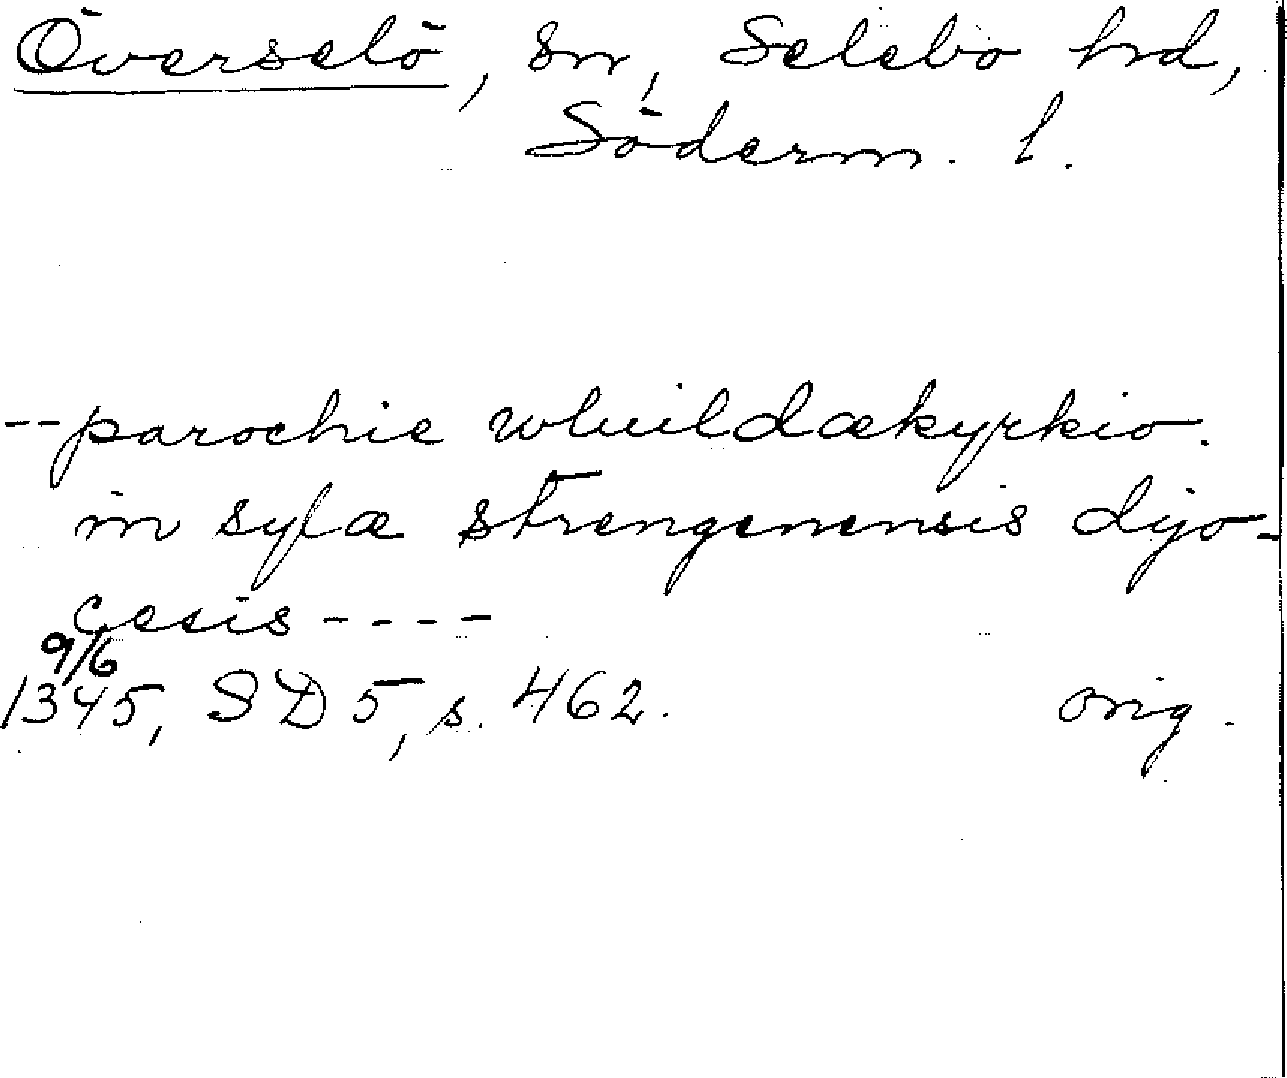 Överselö, sn, Selebo hd,
Söderm. l.
--parochie whuildækyrkio.
in sylæ strengenensis dyo-
cesis----
9/6
1345, SD 5, s. 462. orig.